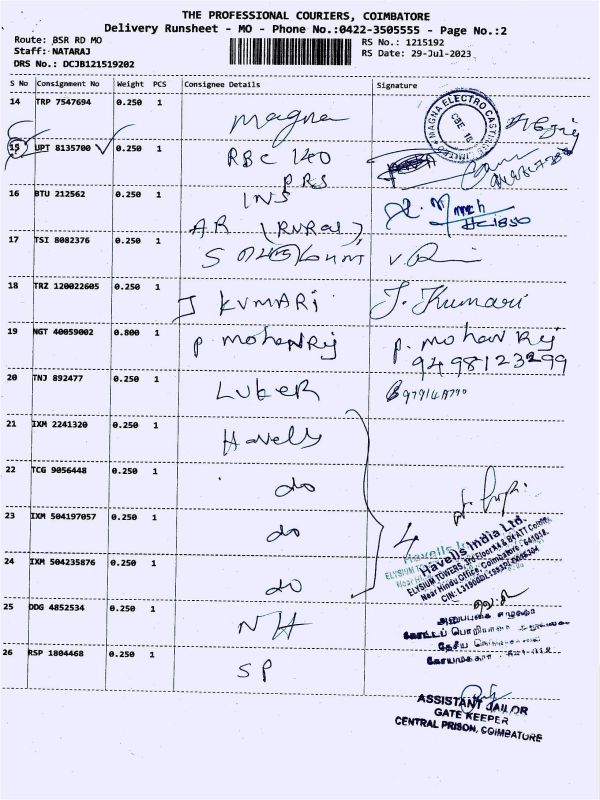 THE PROFESSIONAL COURIERS, COIMBATORE
Delivery Runsheet - MO - Phone No.:0422-3505555 - Page No.:2
Route: BSR RD MO
Staff: NATARAJ
DRS No.: DCJB121519202
RS No.: 1215192
RS Date: 29-Jul-2023
S No Consignment No Weight PCS Consignee Details Signature
14 TRP 7547694 0.250 1 Magna
MAGNA ELECTRO CASTINGS LIMITED
CBE 18
15 UPT 8135700 0.250 1 RBC 140
PRS
16 BTU 212562 0.250 1 INS
A.R (Rural)
17 TSI 8082376 0.250 1 S
18 TRZ 120022605 0.250 1 J KUMARI J. Kumari
19 NGT 40059002 0.800 1 P. mohanRaj P. mohanRaj
9498123299
20 TNJ 892477 0.250 1 LUKER
21 IXM 2241320 0.250 1 Havells
22 TCG 9056448 0.250 1 do
23 IXM 504197057 0.250 1 do
24 IXM 504235876 0.250 1 do
4
Havells India Ltd.
ELYSIUM TOWERS, 3rd Floor
Near Hindu Office, Coimbatore - 641018.
25 DDG 4852534 0.250 1 NH
26 RSP 1804468 0.250 1 SP
ASSISTANT JAILOR
GATE KEEPER
CENTRAL PRISON, COIMBATORE